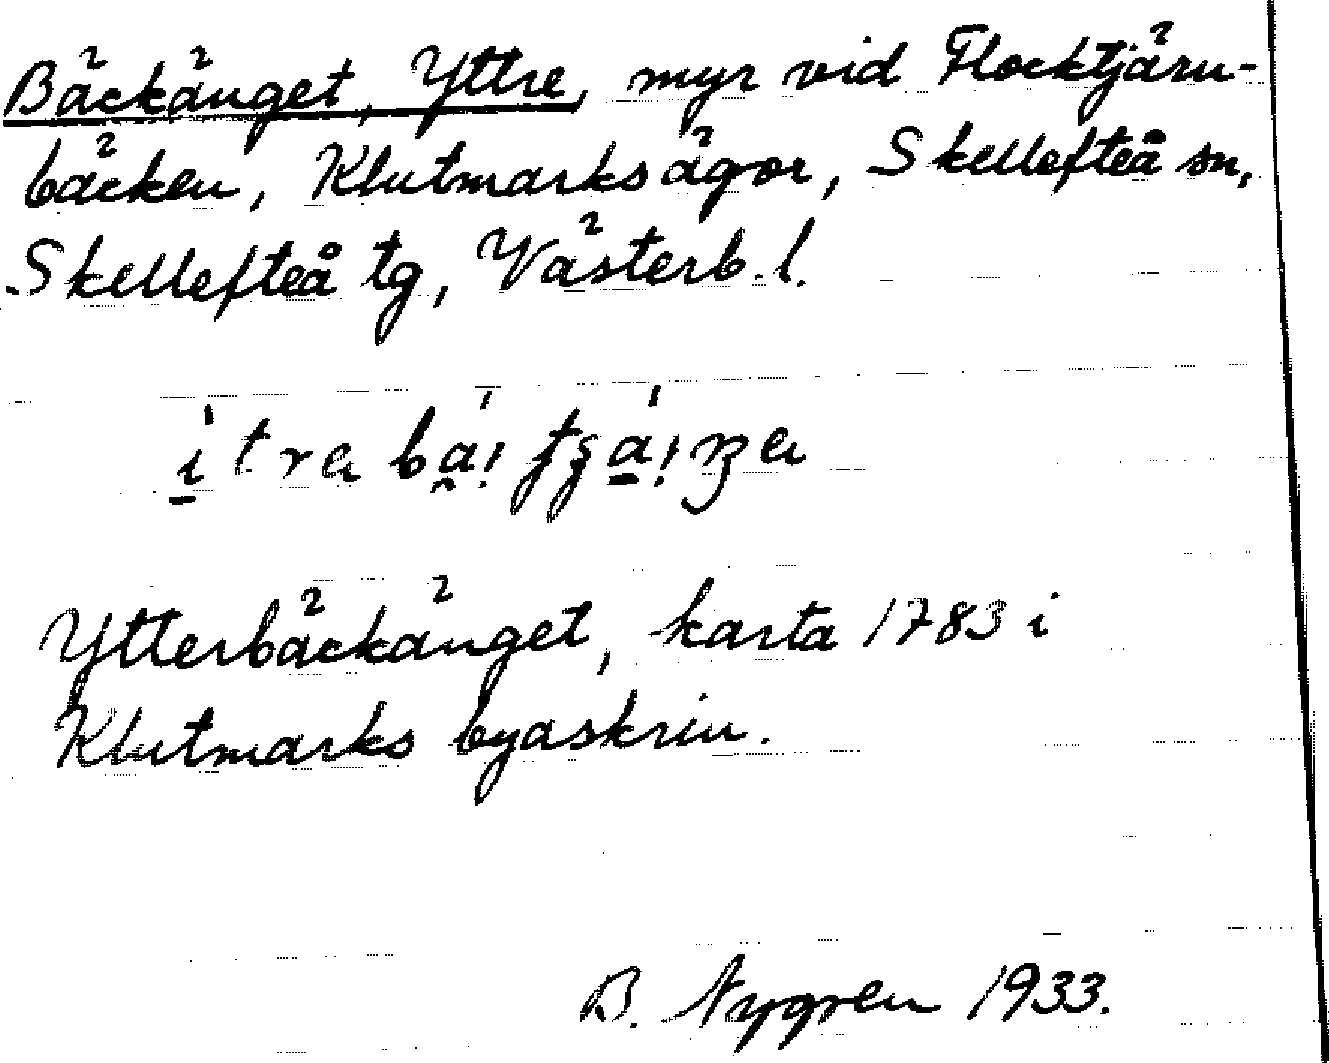 Bäckänget, Yttre, myr vid Flocktjärn-
bäcken, Klutmarksägor, Skellefteå sn,
Skellefteå tg, Västerb. l.
Ytterbäckänget, karta 1783 i
Klutmarks byaskrin.
B. Nygren 1933.